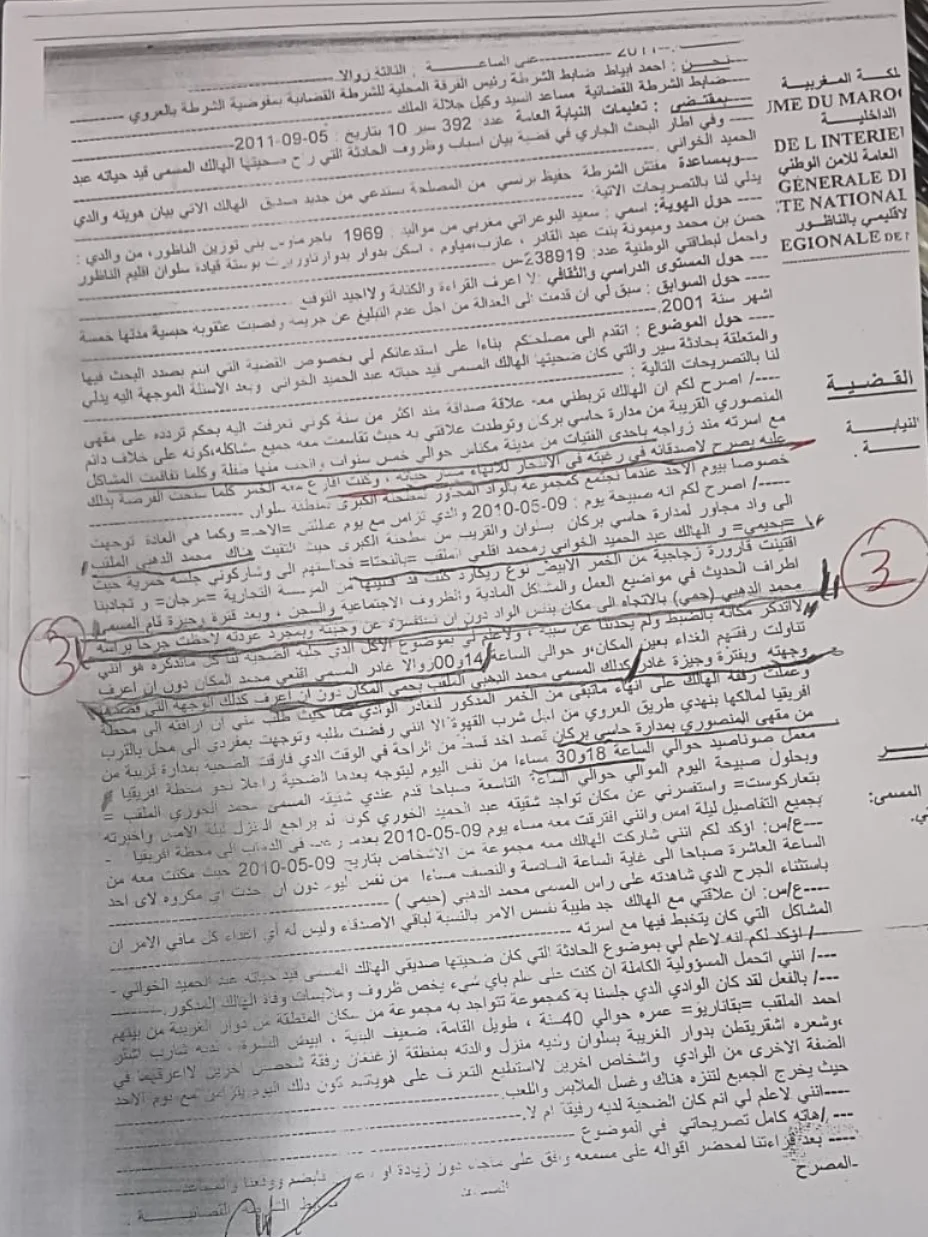 2011- ---------- على الساعـــــة : الثالثة زوالا
---نحـــن : احمد ابياط ضابط الشرطة رئيس الفرقة المحلية للشرطة القضائية بمفوضية الشرطة بالعروي
---ضابط الشرطة القضائية مساعد السيد وكيل جلالة الملك
---بمقتضى : تعليمات النيابة العامة عدد 392 سير 10 بتاريخ : 05-09-2011
---- وفي اطار البحث الجاري في قضية بيان اسباب وظروف الحادثة التي راح ضحيتها الهالك المسمى قيد حياته عبد
الحميد الخواني
---وبمساعدة مفتش الشرطة حفيظ برنسي من المصلحة نستدعي من جديد صديق الهالك الاتي بيان هويته والذي
يدلي لنا بالتصريحات الاتية:
---- حول الهوية: اسمي : سعيد البوعراتي مغربي من مواليد : 1969 بني توزين الناظور، من والدي :
حسن بن محمد وميمونة بنت عبد القادر ، عازب، مياوم ، اسكن بدوار بوستة قيادة سلوان اقليم الناظور
واحمل لبطاقتي الوطنية عدد: 238919-س
--- حول المستوى الدراسي والثقافي :لا اعرف القراءة والكتابة ولااجيد التوقيع
---- حول السوابق : سبق لي ان قدمت الى العدالة من اجل عدم التبليغ عن جريمة وقضيت عقوبة حبسية مدتها خمسة
اشهر سنة 2001.
---- حول الموضوع : اتقدم الى مصلحتكم بناءا على استدعائكم لي بخصوص القضية التي انتم بصدد البحث فيها
والمتعلقة بحادثة سير والتي كان ضحيتها الهالك المسمى قيد حياته عبد الحميد الخواني وبعد الاسئلة الموجهة اليه يدلي
لنا بالتصريحات التالية :
----/ اصرح لكم ان الهالك تربطني معه علاقة صداقة منذ اكثر من سنة كوني تعرفت اليه بحكم تردده على مقهى
المنصوري القريبة من مدارة حاسي بركان وتوطدت علاقتي به حيث تقاسمت معه جميع مشاكله،كونه على خلاف دائم
مع اسرته منذ زواجه باحدى الفتيات من مدينة مكناس حوالي خمس سنوات وانجب منها طفلة وكلما تفاقمت المشاكل
عليه يصرح لاصدقائه في رغبته في الانتحار للانهاء مسار حياته ، وكنت اقارع معه الخمر كلما سنحت الفرصة بذلك
خصوصا بيوم الاحد عندما نجتمع كمجموعة بالواد المجاور لمطحنة الكبرى بمنطقة سلوان
----/ اصرح لكم انه صبيحة يوم : 09-05-2010 والذي تزامن مع يوم عطلتي =الاحد= وكما هي العادة توجهت
الى واد مجاور لمدارة حاسي بركان بسلوان والقريب من مطحنة الكبرى حيث التقيت هناك محمد الذهبي الملقب
=بحيمي= و الهالك عبد الحميد الخواني ومحمد اقلعي الملقب =بالنحتا= فجالستهم الى وشاركوني جلسة خمرية حيث
اقتنيت قارورة زجاجية من الخمر الابيض نوع ريكارد كنت قد قنيتها من المؤسسة التجارية =مرجان= و تجاذبنا
اطراف الحديث في مواضيع العمل والمشاكل المادية والظروف الاجتماعية والسجن ، وبعد فترة وجيزة قام المسمى
محمد الذهبي (حمي) بالاتجاه الى مكان بنفس الواد دون ان نستفسره عن وجهته وبمجرد عودته لاحظت جرحا براسه
لااتذكر مكانه بالضبط ولم يحدثنا عن سببه ، ولاعلم لي بموضوع الاكل الذي جلبه الضحية لنا كل ماتذكره هو انني
تناولت رفقتهم الغداء بعين المكان،و حوالي الساعة 14و00زوالا غادر السمى اقلعي محمد المكان دون ان اعرف
وجهته وبفترة وجيزة غادر كذلك المسمى محمد الذهبي الملقب بحمي المكان دون ان اعرف كذلك الوجهة التي قصدها
وعملت رفقة الهالك على انهاء ماتبقى من الخمر المذكور لنغادر الوادي معا حيث طلب مني ان ارافقه الى محطة
افريقيا لمالكها بنهدي طريق العروي من اجل شرب القهوة الا انني رفضت طلبه وتوجهت بمفردي الى محل بالقرب
من مقهى المنصوري بمدارة حاسي بركان قصد اخد قسط من الراحة في الوقت الذي فارقت الضحية بمدارة قريبة من
معمل صوناصيد حوالي الساعة 18و30 مساءا من نفس اليوم ليتوجه بعدها الضحية راجلا نحو محطة افريقيا
وبحلول صبيحة اليوم الموالي حوالي الساعة التاسعة صباحا قدم عندي شقيقه المسمى محمد الحوري الملقب =
بتعاركوست= واستفسرني عن مكان تواجد شقيقه عبد الحميد الخوري كونه لم يراجع المنزل ليلة الامس واخبرته
بجميع التفاصيل ليلة امس وانني افترقت معه مساء يوم 09-05-2010 بعدما رغب في الذهاب الى محطة افريقيا -
----ع/س: اؤكد لكم انني شاركت الهالك معه مجموعة من الاشخاص بتاريخ 09-05-2010 حيث مكثت معه من
الساعة العاشرة صباحا الى غاية الساعة السادسة والنصف مساءا من نفس اليوم دون ان حدث اي مكروه لاي احد
باستثناء الجرح الذي شاهدته على راس المسمى محمد الذهبي (حيمي )
----ع/س: ان علاقتي مع الهالك جد طيبة نفس الامر بالنسبة لباقي الاصدقاء وليس له أي اعداء كل مافي الامر ان
المشاكل التي كان يتخبط فيها مع اسرته
----/ اؤكد لكم انه لاعلم لي بموضوع الحادثة التي كان ضحيتها صديقي الهالك المسمى قيد حياته عبد الحميد الخواني -
---/ انني اتحمل المسؤولية الكاملة ان كنت على علم باي شيء يخص ظروف وملابسات وفاة الهالك المذكور.
---/ بالفعل لقد كان الوادي الذي جلسنا به كمجموعة تتواجد به مجموعة من سكان المنطقة من دوار الغريبة من بينهم
احمد الملقب =بقاناريو= عمره حوالي 40سنة ، طويل القامة، ضعيف البنية ، ابيض البشرة ، لديه شارب اشقر
،وشعره اشقريقطن بدوار الغريبة بسلوان ولديه منزل والدته بمنطقة ازغنغان رفقة شخصين اخرين لااعرفهما في
الضفة الاخرى من الوادي واشخاص اخرين لااستطيع التعرف على هويتهم كون ذلك اليوم يتزامن مع يوم الاحد
حيث يخرج الجميع لتنزه هناك وغسل الملابس واللعب
----انني لاعلم لي انم كان الضحية لديه رفيقة ام لا.
--- /هاته كامل تصريحاتي في الموضوع
---- بعد قراءتنا لمحضر اقواله على مسمعه وافق على ماجاء دون زيادة او
-المصرح
المساعد
ضابط الشرطة القضائيـــة
لكة المغربيـة
UME DU MAROC
الداخليـة
DE L INTERIEU
العامة للامن الوطني
GENERALE DE
TE NATIONAL
لاقليمي بالناظور
EGIONALE DE
القضيـة
النيابـة
ـة .
ـر
المسمى:
ني.
3
3